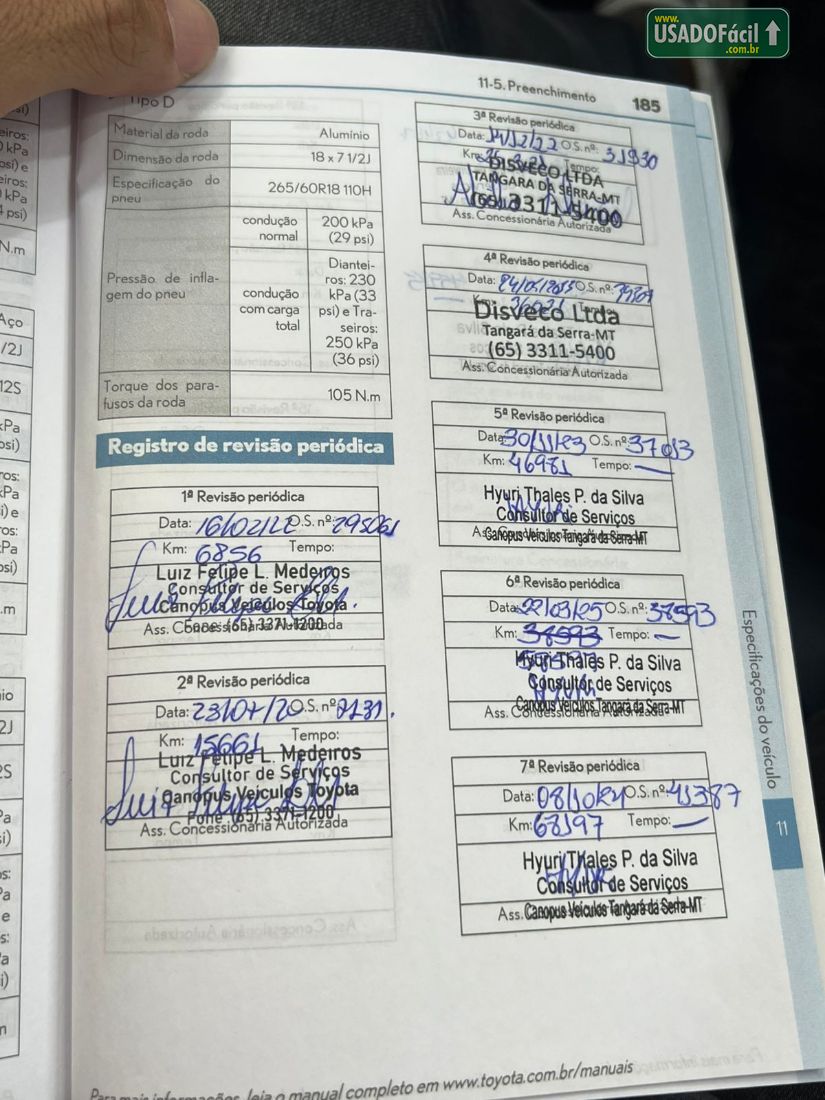 www.
USADOFácil
.com.br
11-5. Preenchimento 185
Tipo D
Material da roda Alumínio
Dimensão da roda 18 x 7 1/2J
Especificação do pneu 265/60R18 110H
Pressão de infla-
gem do pneu
condução
normal
200 kPa
(29 psi)
condução
com carga
total
Diantei-
ros: 230
kPa (33
psi) e Tra-
seiros:
250 kPa
(36 psi)
Torque dos para-
fusos da roda
105 N.m
Registro de revisão periódica
1ª Revisão periódica
Data: 16/02/22 O.S. nº: 295061
Km: 6856 Tempo:
Luiz Felipe L. Medeiros
Consultor de Serviços
Canopus Veículos Toyota
Fone: (65) 3371-1200
Ass. Concessionária Autorizada
2ª Revisão periódica
Data: O.S. nº
Km: 15661 Tempo:
Luiz Felipe L. Medeiros
Consultor de Serviços
Canopus Veículos Toyota
Fone (65) 3371-1200
Ass. Concessionária Autorizada
3ª Revisão periódica
Data: O.S. nº: 31930
Km: Tempo:
DISVECO LTDA
TANGARA DA SERRA-MT
(65) 3311-5400
Ass. Concessionária Autorizada
4ª Revisão periódica
Data: O.S. nº:
Km: Tempo:
Disveco Ltda
Tangará da Serra-MT
(65) 3311-5400
Ass. Concessionária Autorizada
5ª Revisão periódica
Data: 30/11/23 O.S. nº: 37013
Km: 46981 Tempo:
Hyuri Thales P. da Silva
Consultor de Serviços
Canopus Veículos Tangará da Serra-MT
6ª Revisão periódica
Data: O.S. nº: 38593
Km: 38593 Tempo:
Hyuri Thales P. da Silva
Consultor de Serviços
Canopus Veículos Tangará da Serra-MT
Ass. Concessionária Autorizada
7ª Revisão periódica
Data: O.S. nº: 41387
Km: 68197 Tempo:
Hyuri Thales P. da Silva
Consultor de Serviços
Ass. Canopus Veículos Tangará da Serra-MT
Especificações do veículo
11
Para mais informações, leia o manual completo em www.toyota.com.br/manuais